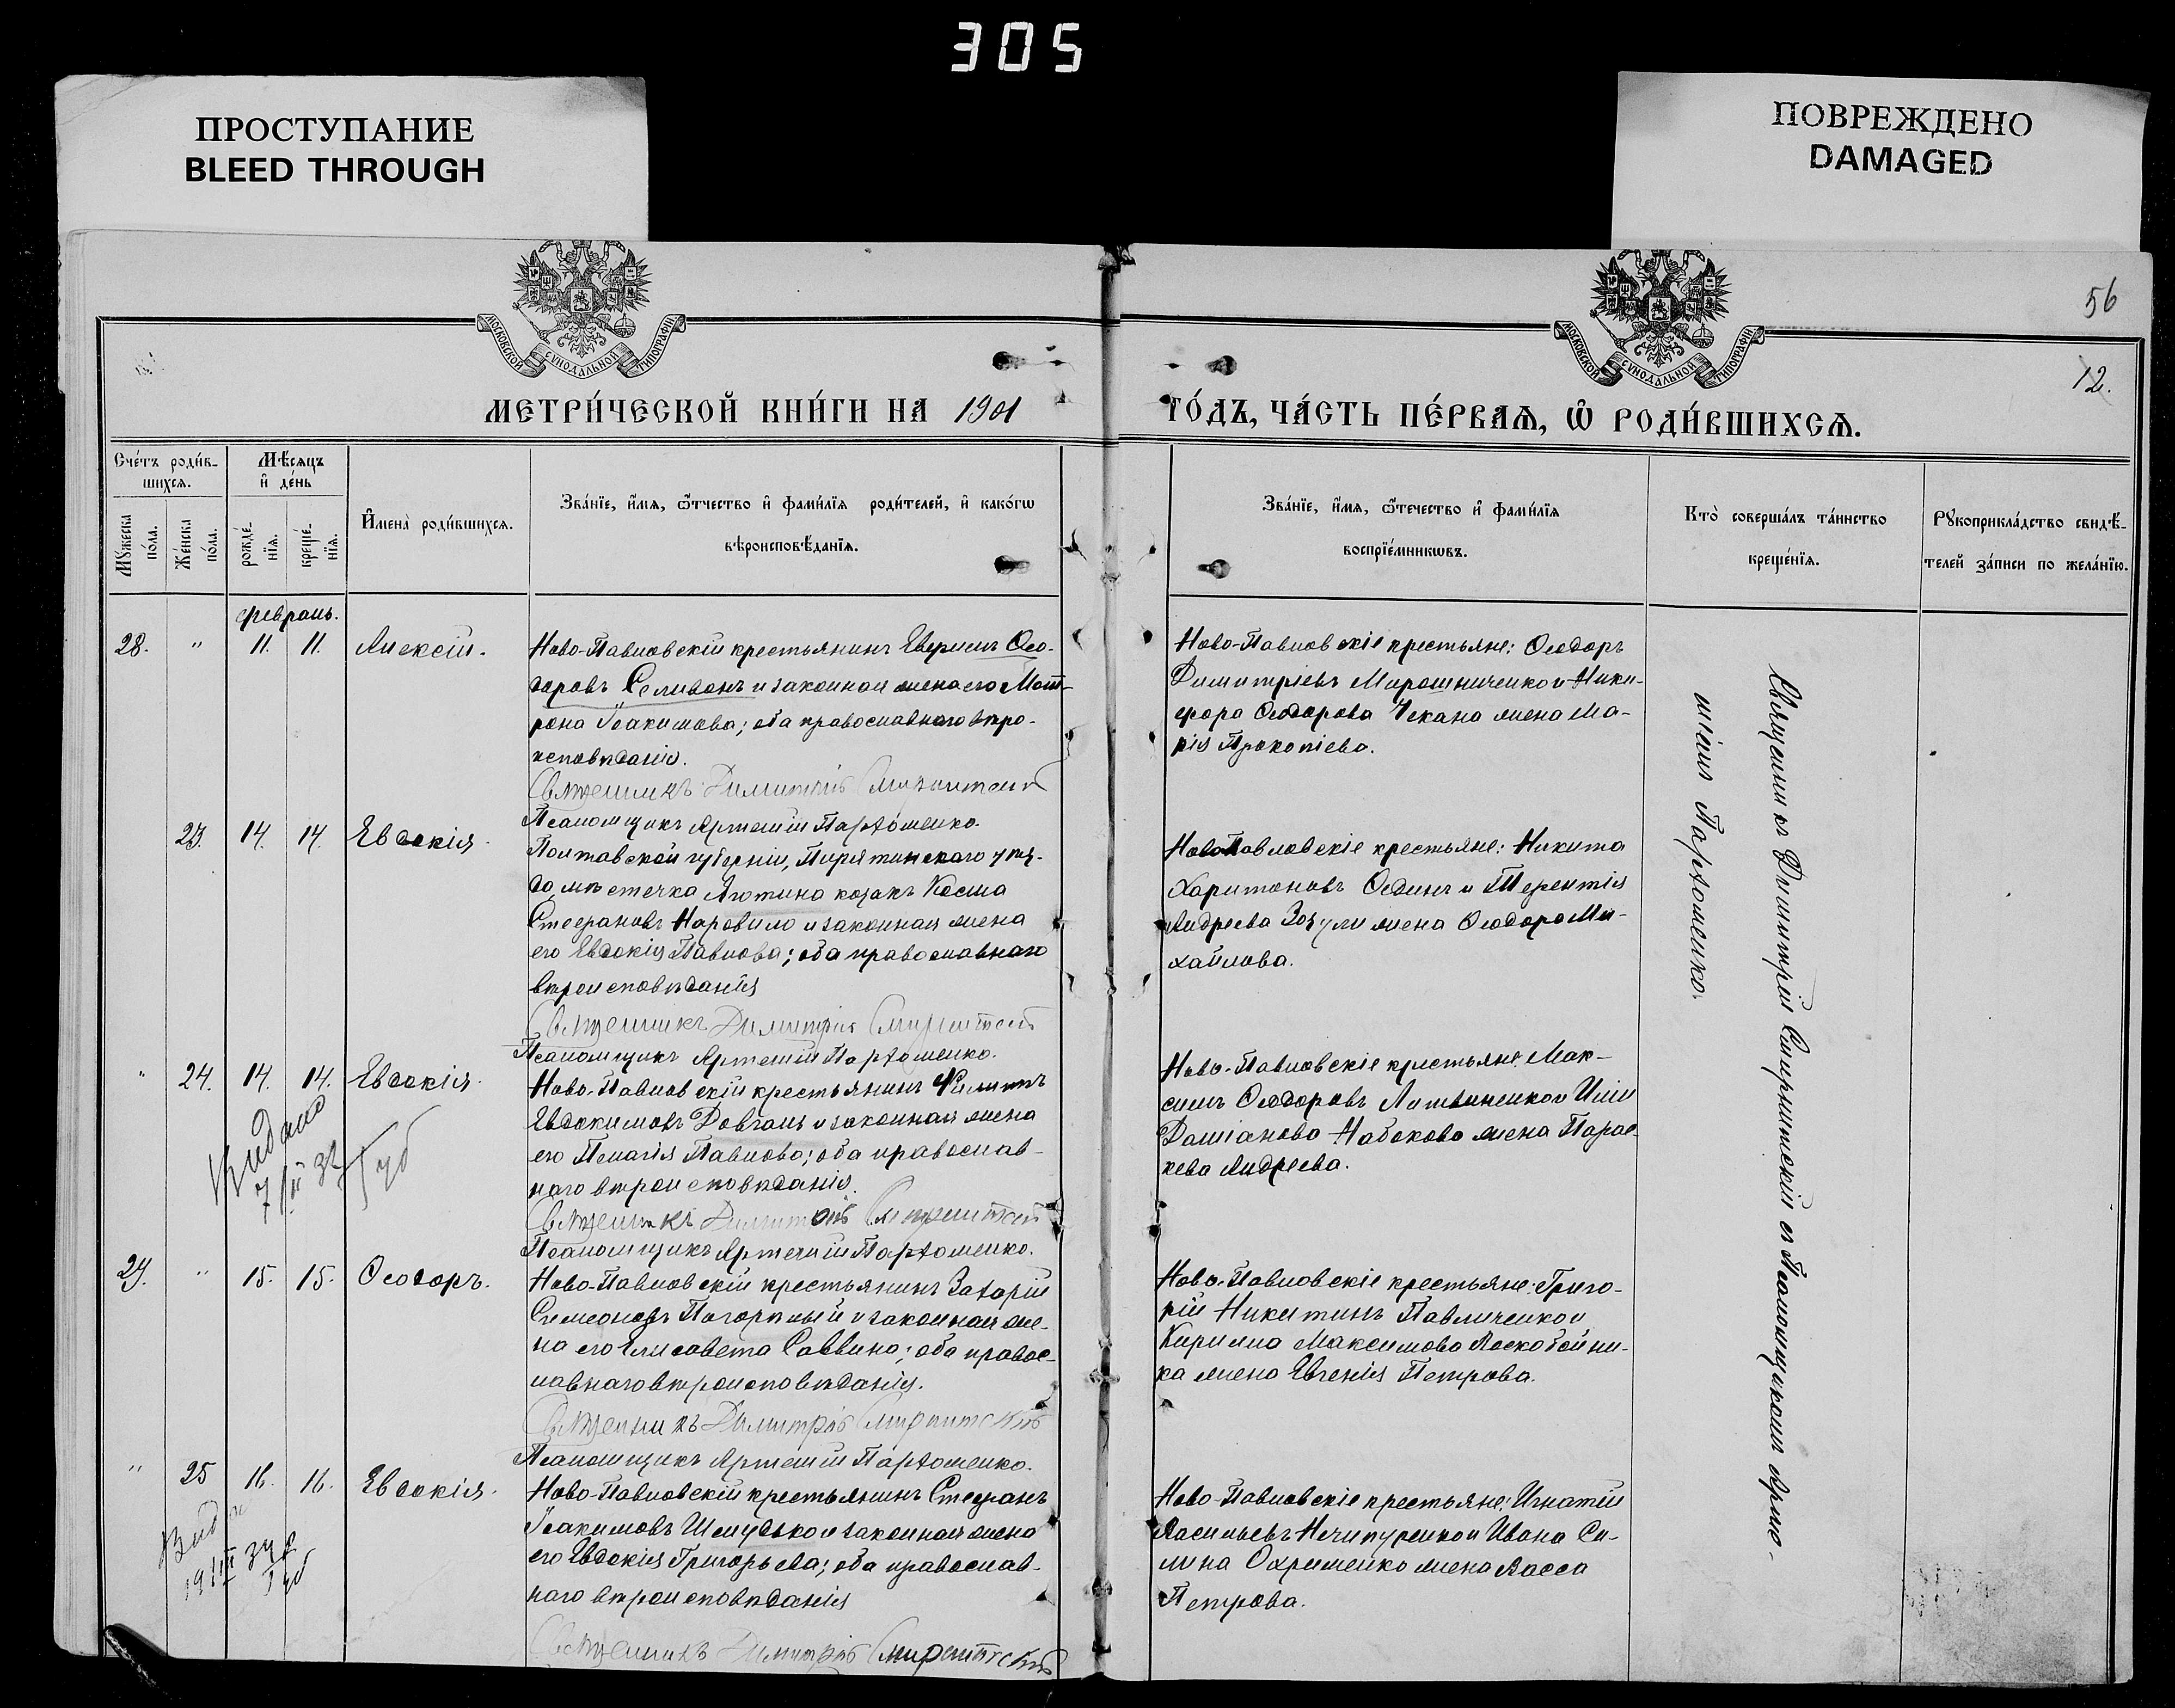 305
ПРОСТУПАНИЕ
BLEED THROUGH
ПОВРЕЖДЕНО
DAMAGED
56
12.
МОСКОВСКОЙ СѴНОДАЛЬНОЙ ТИПОГРАФІИ
МОСКОВСКОЙ СѴНОДАЛЬНОЙ ТИПОГРАФІИ
МЕТРИ́ЧЕСКОЙ КНИ́ГИ НА 1901
ГО́ДЪ, ЧА́СТЬ ПЕ́РВАѦ, Ѡ҆ РОДИ́ВШИХСѦ.
Сче́тъ роди́в-
шихсѧ.
Мꙋ́жеска
по́ла.
Же́нска
по́ла.
Мѣ́сѧцъ
и҆ де́нь
рожде́-
нїѧ.
креще́-
нїѧ.
И҆мена̀ роди́вшихсѧ.
Зва́нїе, и҆́мѧ, ѻ҆́тчество и҆ фами́лїѧ роди́телей, и҆ како́гѡ
вѣроисповѣ́данїѧ.
Зва́нїе, и҆́мѧ, ѻ҆те́чество и҆ фами́лїѧ
воспрїе́мникѡвъ.
Кто̀ соверша́лъ та́инство
креще́нїѧ.
Рꙋкоприкла́дство свидѣ́-
телей за́писи по жела́нїю.
февраль.
28. " 11. 11. Алексій.
Ново-Павловскій крестьянинъ Ефимъ Ѳео-
доровъ Селиванъ и законная жена его Мат-
рона Іоакимова; оба православнаго вѣро-
исповѣданія.
Священникъ Димитрій Смирнитскій
Псаломщикъ Артемій Пархоменко.
Ново-Павловскіе крестьяне: Ѳеодоръ
Димитріевъ Мирошниченко и Ники-
фора Ѳеодорова Чекана жена Ма-
рія Прокопіева.
23. 14. 14. Евдокія.
Полтавской губерніи, Пирятинскаго уѣз-
да, мѣстечка козакъ Косма
Стефановъ и законная жена
его Евдокія Павлова; оба православнаго
вѣроисповѣданія
Священникъ Димитрій Смирнитскій
Псаломщикъ Артемій Пархоменко.
Ново Павловскіе крестьяне: Никита
Харитоновъ и Терентія
Андреева Зозули жена Ѳеодора Ми-
хайлова.
" 24. 14. 14. Евдокія.
Ново-Павловскій крестьянинъ Филиппъ
Евдокимовъ Довгаль и законная жена
его Пелагія Павлова; оба православ-
наго вѣроисповѣданія.
Священникъ Димитрій Смирнитскій
Псаломщикъ Артемій Пархоменко.
Видано
Ново-Павловскіе крестьяне: Мак-
симъ Ѳеодоровъ Литвиненко и Иліи
Даміанова Набокова жена Парас-
кева Андреева.
29. " 15. 15. Ѳеодоръ.
Ново-Павловскій крестьянинъ Захарій
Симеоновъ Погорѣлый и законная же-
на его Елисавета Саввина; оба правос-
лавнаго вѣроисповѣданія.
Священникъ Димитрій Смирнитскій
Псаломщикъ Артемій Пархоменко.
Ново-Павловскіе крестьяне: Григо-
рій Никитинъ Павличенко и
Кирилла Максимова Лоскобойни-
ка жена Евгенія Петрова.
" 25 16. 16. Евдокія.
Ново-Павловскій крестьянинъ Стефанъ
Іоакимовъ Шемудько и законная жена
его Евдокія Григорьева; оба православ-
наго вѣроисповѣданія
Священникъ Димитрій Смирнитскій
Ново-Павловскіе крестьяне: Игнатій
Васильевъ Нечипуренко и Ивана Си-
лина Охрименко жена Васса
Петрова.
Священникъ Димитрій Смирнитскій съ Псаломщикомъ Арте-
міемъ Пархоменко.